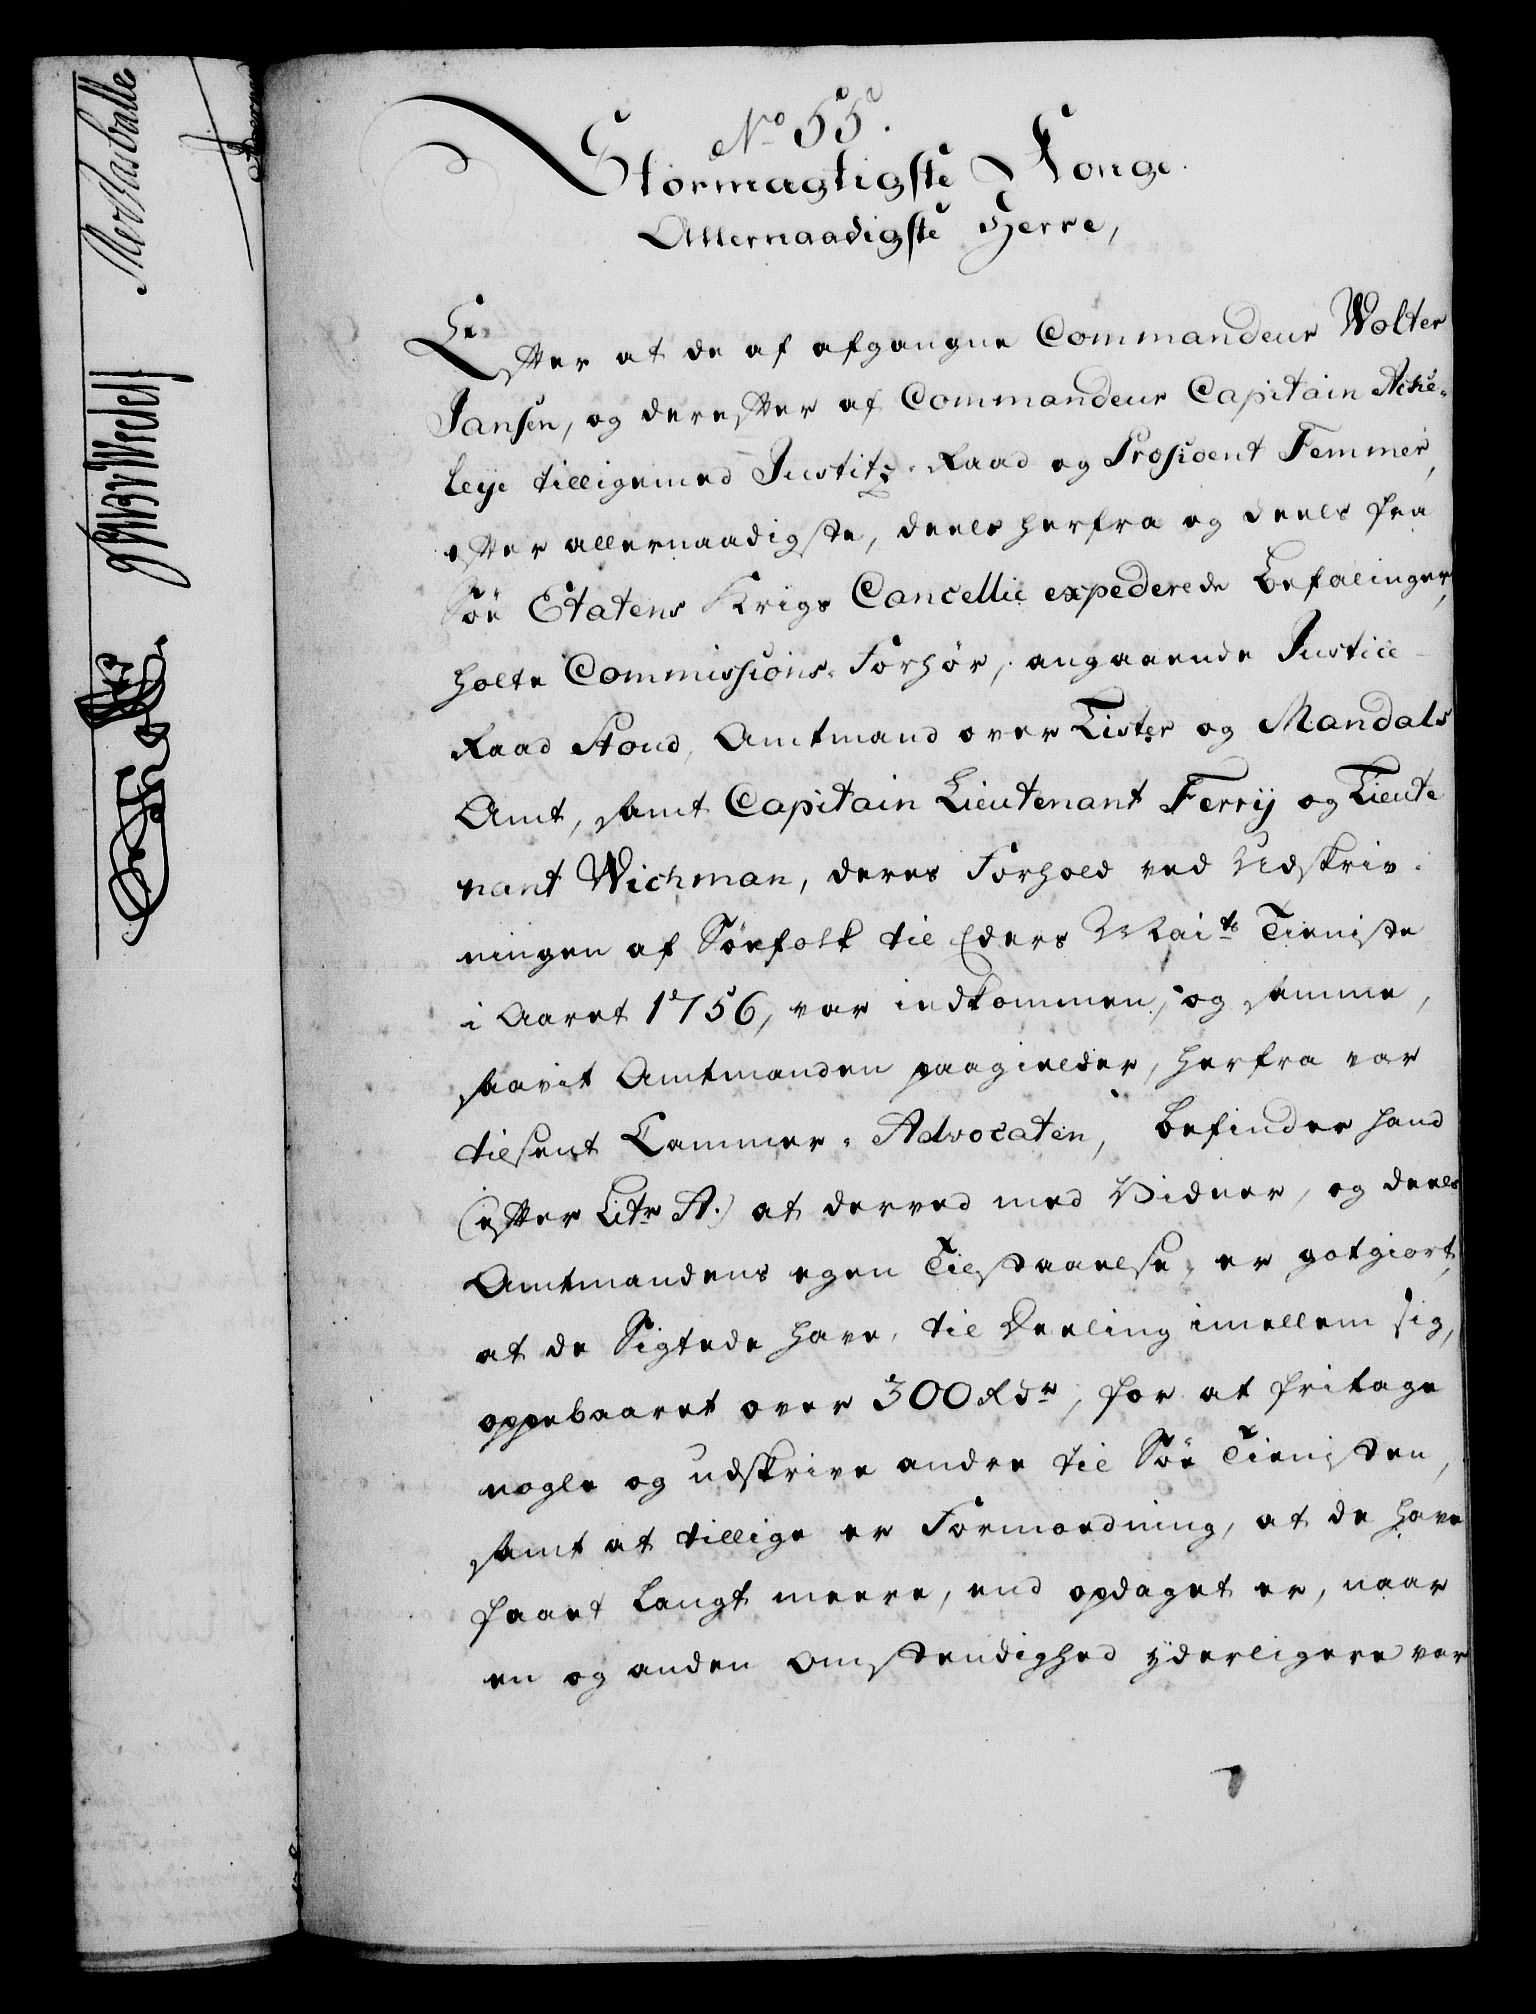 No 55.
Stormægtigste Konge
Allernaadigste Herre,
Efter at de af afgangne Commandeur Wolter
Jansen, og derefter af Commandeur Capitain Ache-
leye tilligemed Justitz-Raad og Præsident Femmer,
efter allernaadigste, deels herfra og deels fra
Søe Etatens Krigs Cancellie expederede Befalinger,
holte Commissions-Forhør, angaaende Justice-
Raad Stoud, Amtmand over Lister og Mandals
Amt, samt Capitain Lieutenant Ferry og Lieute
nant Wichman, deres Forhold ved Udskriv-
ningen af Søefolk til Eders Maits Tieniste
i Aaret 1756, var indkommen, og samme,
saavit Amtmanden paagielder, herfra var
tilsent Cammer-Advocaten, befinder hand
(efter Litr A.) at derved med Vidner, og deels
Amtmandens egen Tilstaaelse, er gotgiort,
at de Sigtede have, til Deeling imellem sig,
oppebaaret over 300 Rdr, for at fritage
nogle og udskrive andre til Søe Tienisten,
samt at tillige er Formodning, at de have
faaet langt meere, end opdaget er, naar
en og anden Omstendighed yderligere var